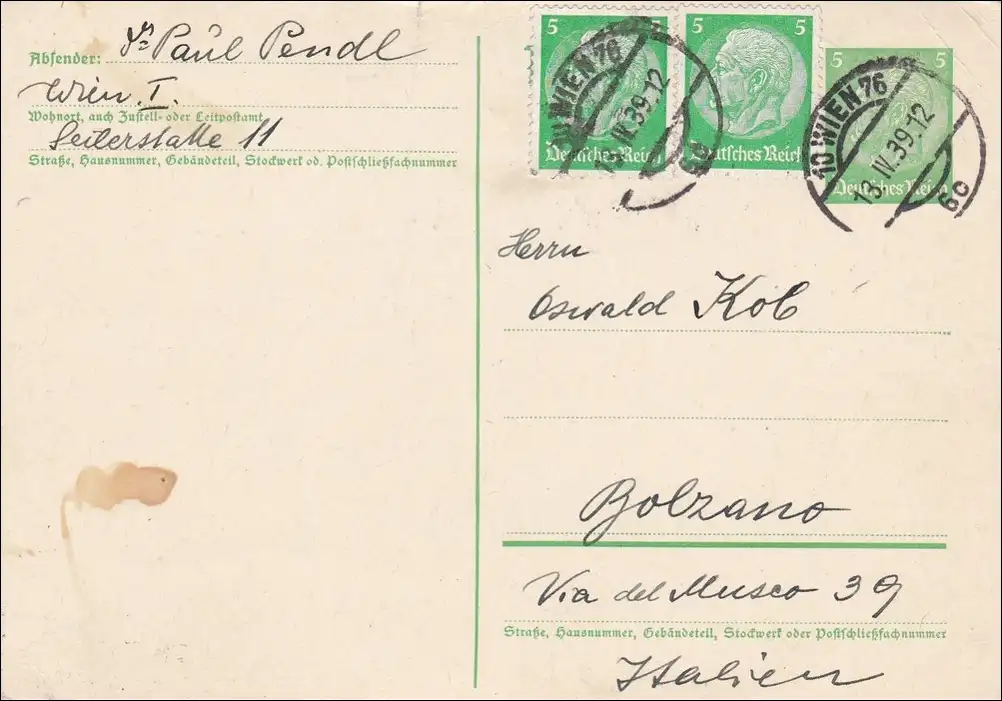 Absender: Dr Paul Pendl
Wien. I.
Wohnort, auch Zustell- oder Leitpostamt
Seilerstatte 11
Straße, Hausnummer, Gebäudeteil, Stockwerk od. Postschließfachnummer
5 5
Deutsches Reich
5
Deutsches Reich
5 5
Deutsches Reich
10 WIEN 76
13.IV.39.12
6c
10 WIEN 76
13.IV.39.12
6c
Herrn
Oswald Kob
Bolzano
Via del Museo 39
Straße, Hausnummer, Gebäudeteil, Stockwerk oder Postschließfachnummer
Italien